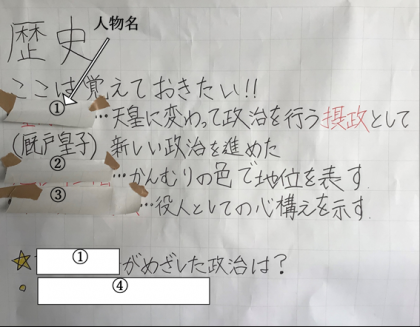 歴史
人物名
ここは覚えておきたい!!
① …天皇に変わって政治を行う摂政として
(厩戸皇子) 新しい政治を進めた
② …かんむりの色で地位を表す
③ …役人としての心構えを示す
① がめざした政治は?
④